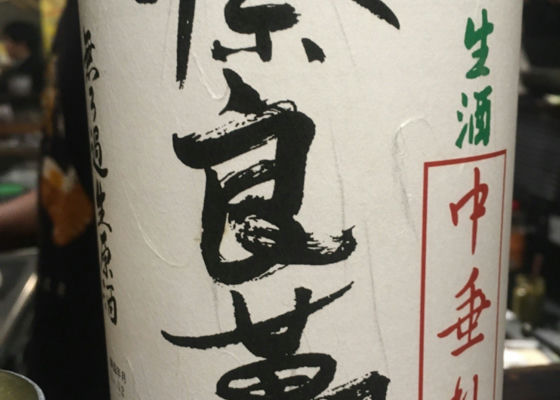 生酒
中垂れ
奈良萬
無ろ過生原酒